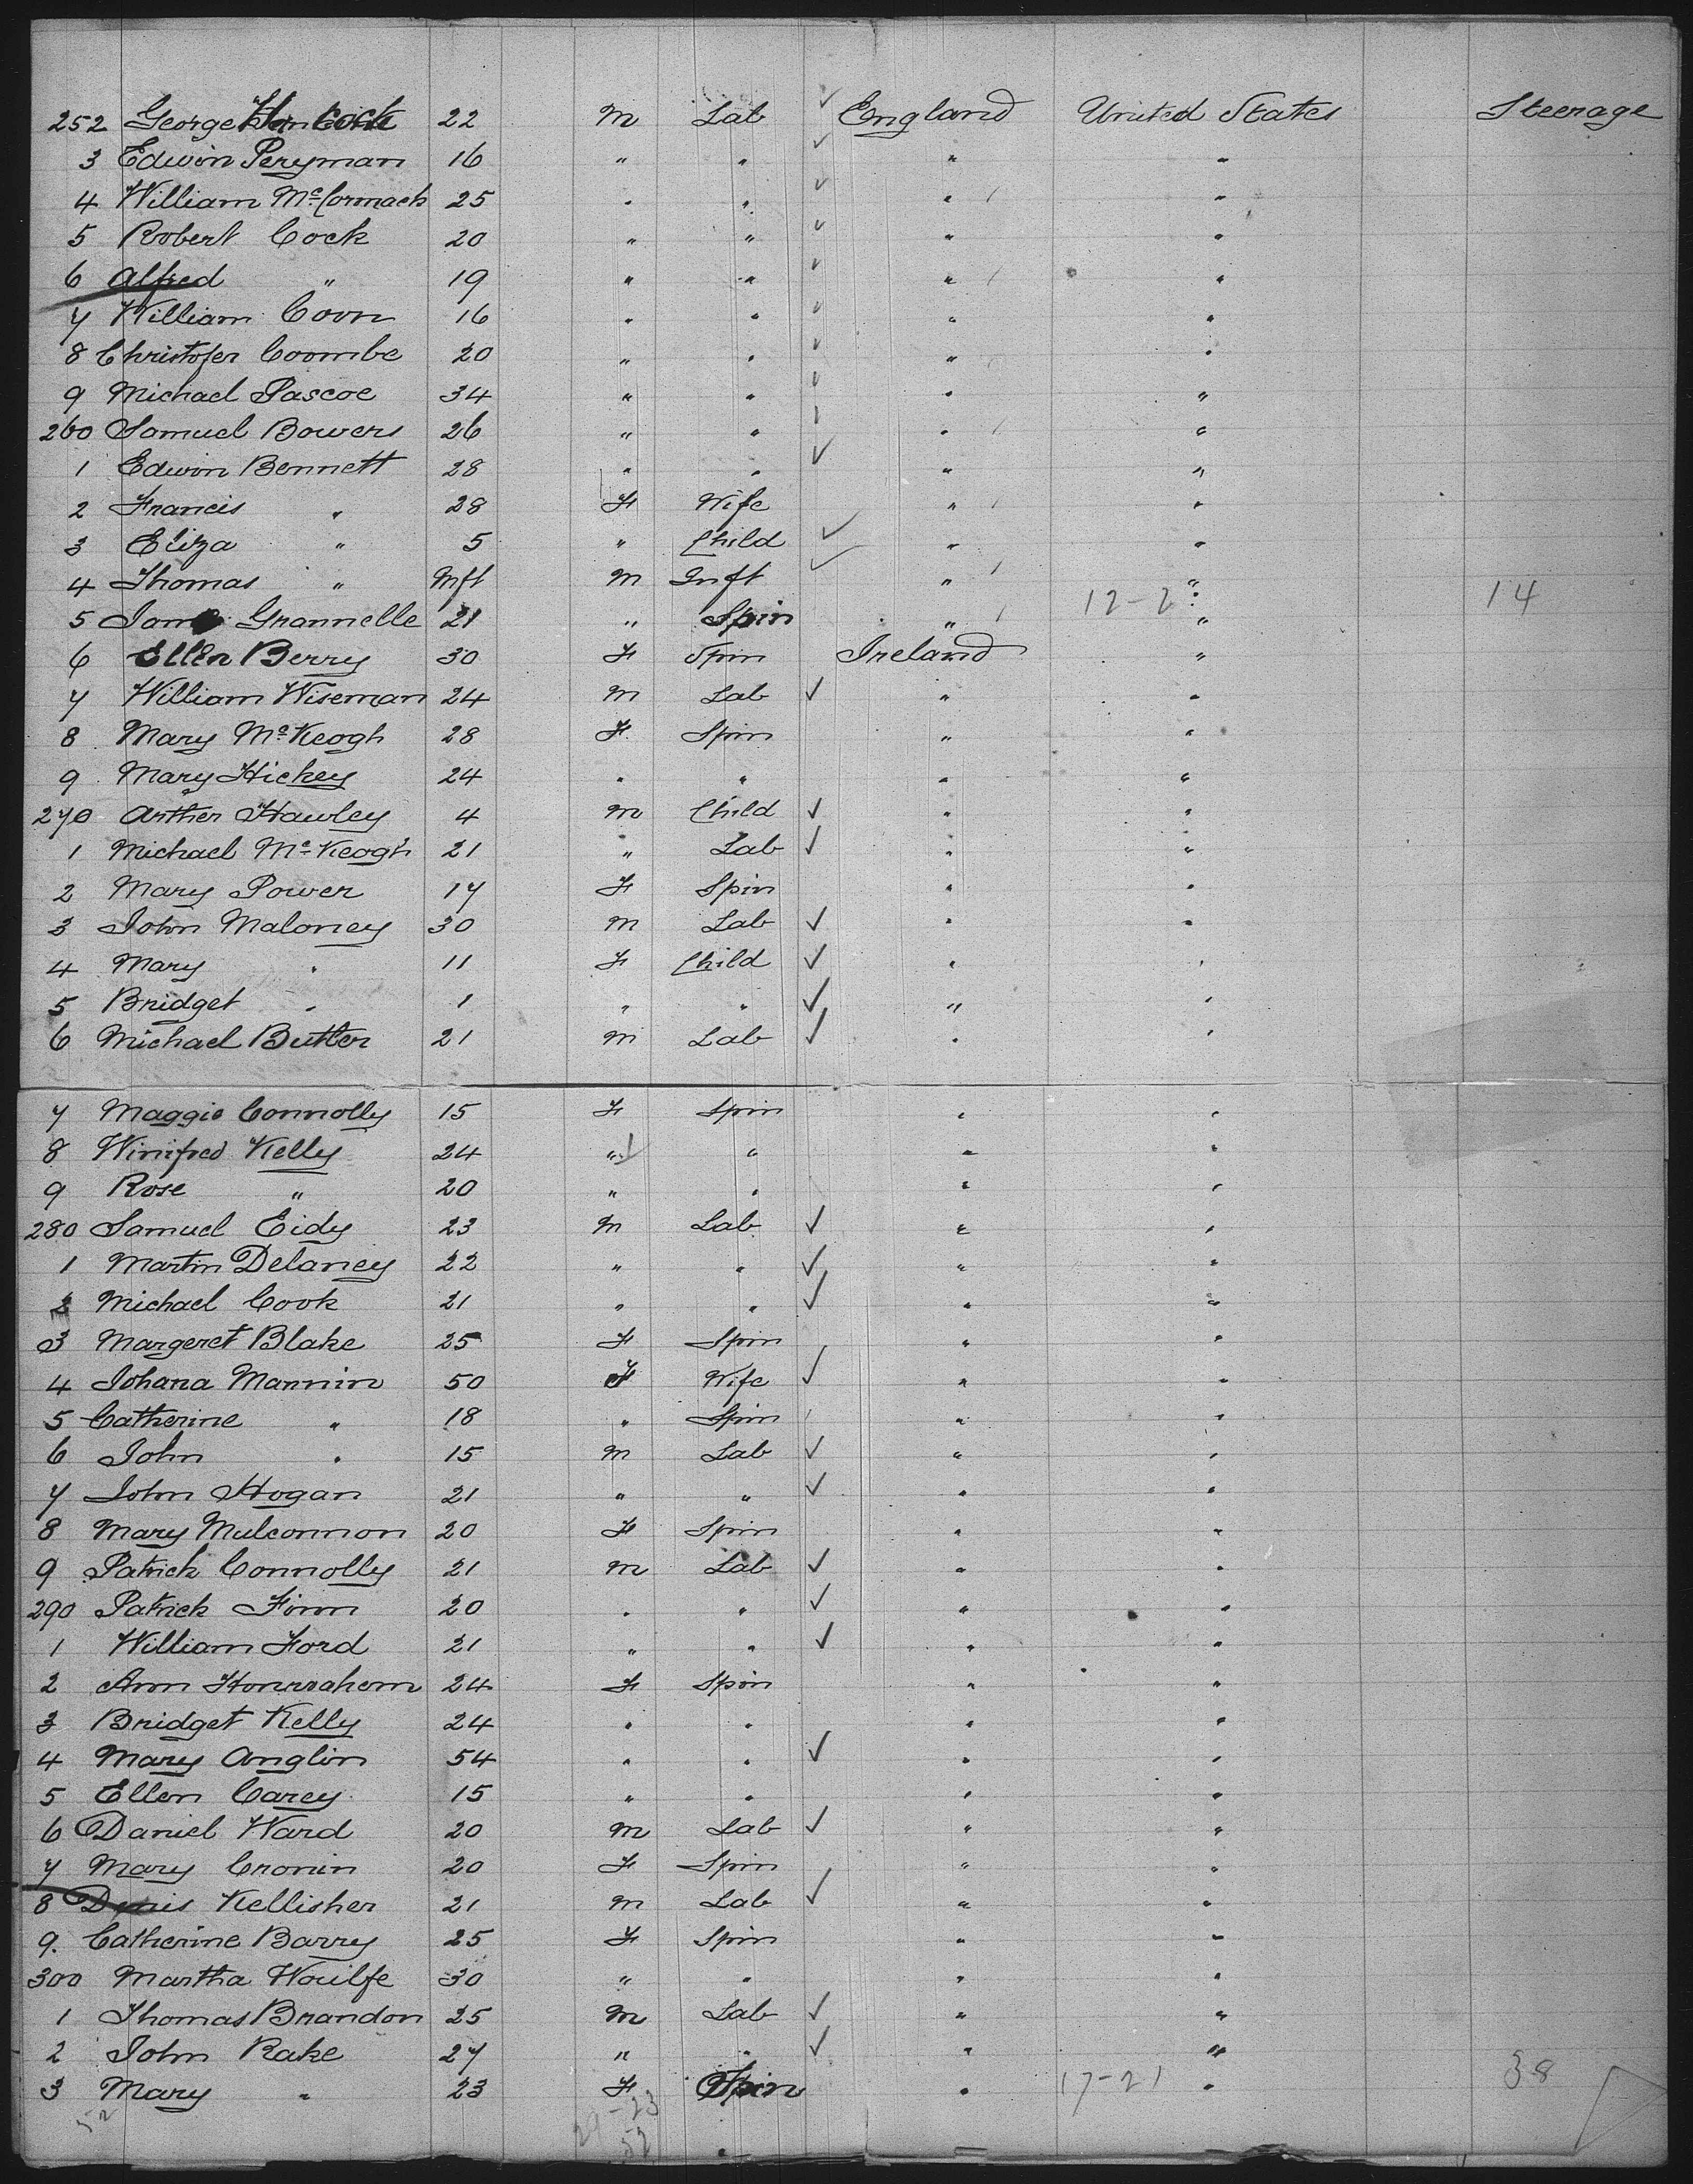 252 George Hancock 22 M Lab ✓ England United States Steerage
3 Edwin Peryman 16 " " ✓ " "
4 William McCormack 25 " " ✓ " "
5 Robert Cock 20 " " ✓ " "
6 Alfred " 19 " " ✓ " "
7 William Coon 16 " " ✓ " "
8 Christofer Coombe 20 " " ✓ " "
9 Michael Pascoe 34 " " ✓ " "
260 Samuel Bowers 26 " " ✓ " "
1 Edwin Bennett 28 " " ✓ " "
2 Francis " 28 F Wife " "
3 Eliza " 5 " Child ✓ " "
4 Thomas " Inft M Inft ✓ " "
12-2 14
5 Grannelle 21 " Spin " "
6 Ellen Berry 30 F Spin Ireland "
7 William Wiseman 24 M Lab ✓ " "
8 Mary McKeogh 28 F Spin " "
9 Mary Hickey 24 " " " "
270 Arther Hawley 4 M Child ✓ " "
1 Michael McKeogh 21 " Lab ✓ " "
2 Mary Power 17 F Spin " "
3 John Maloney 30 M Lab ✓ " "
4 Mary " 11 F Child ✓ " "
5 Bridget " 1 " " ✓ " "
6 Michael Butler 21 M Lab ✓ " "
7 Maggie Connolly 15 F Spin " "
8 Winifred Kelly 24 " " " "
9 Rose " 20 " " " "
280 Samuel Eidy 23 M Lab ✓ " "
1 Martin Delaney 22 " " ✓ " "
2 Michael Cook 21 " " ✓ " "
3 Margeret Blake 25 F Spin " "
4 Johana Mannin 50 F Wife ✓ " "
5 Catherine " 18 " Spin " "
6 John " 15 M Lab ✓ " "
7 John Hogan 21 " " ✓ " "
8 Mary Mulconnon 20 F Spin " "
9 Patrick Connolly 21 M Lab ✓ " "
290 Patrick Finn 20 " " ✓ " "
1 William Ford 21 " " ✓ " "
2 Ann 24 F Spin " "
3 Bridget Kelly 24 " " " "
4 Mary Anglin 54 " " ✓ " "
5 Ellen Carey 15 " " " "
6 Daniel Ward 20 M Lab ✓ " "
7 Mary Cronin 20 F Spin " "
8 Denis Kellisher 21 M Lab ✓ " "
9. Catherine Barry 25 F Spin " "
300 Martha Woulfe 30 " " " "
1 Thomas Brandon 25 M Lab ✓ " "
2 John Rake 27 " " ✓ " "
3 Mary " 23 F Spin " 17-21 " 38
52 29-23
52